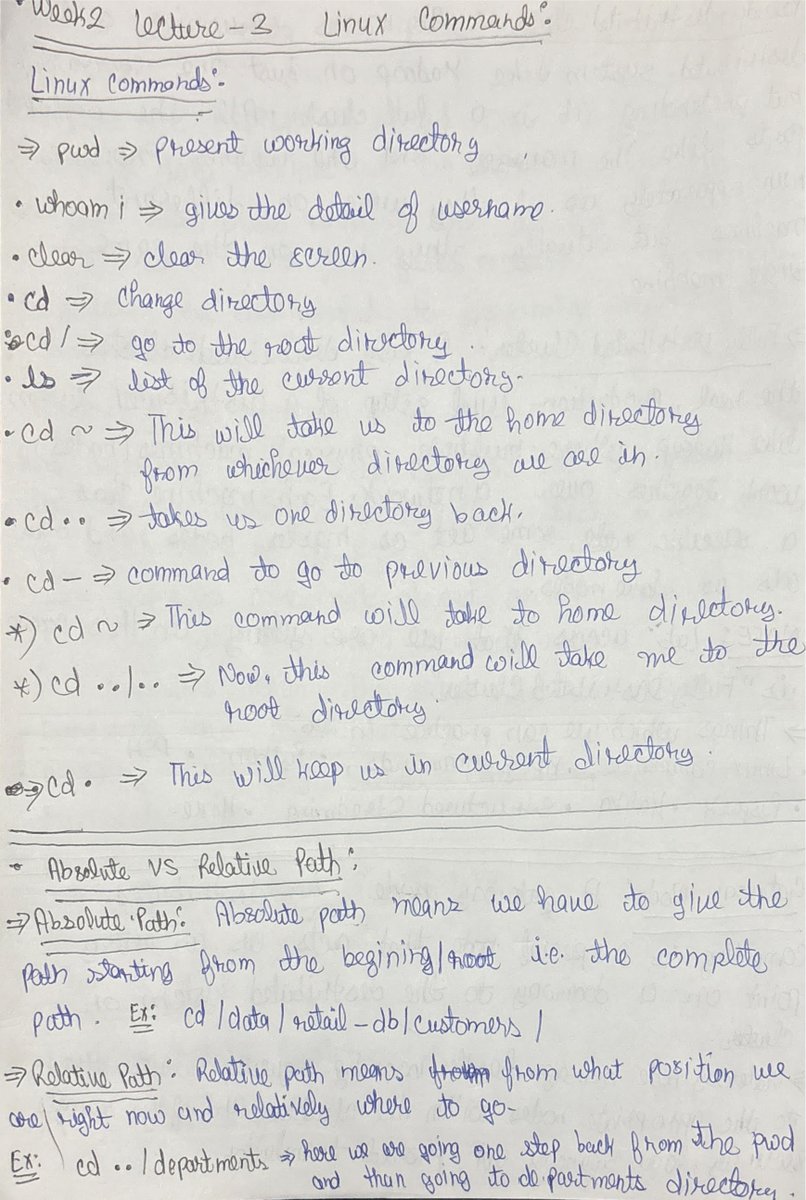 • Week2 Lecture-3 Linux Commands:
Linux Commands:-
⇒ pwd ⇒ present working directory
• whoami ⇒ gives the detail of username.
• clear ⇒ clear the screen.
• cd ⇒ change directory
• cd / ⇒ go to the root directory.
• ls ⇒ list of the current directory.
• cd ~ ⇒ This will take us to the home directory
from whichever directory we are in.
• cd .. ⇒ takes us one directory back.
• cd - ⇒ command to go to previous directory
*) cd ~ ⇒ This command will take to home directory.
*) cd ../.. ⇒ Now, this command will take me to the
root directory.
⇒ cd . ⇒ This will keep us in current directory.
• Absolute VS Relative Path:
⇒ Absolute Path: Absolute path means we have to give the
path starting from the begining/root i.e. the complete
path. Ex: cd /data/retail-db/customers/
⇒ Relative Path: Relative path means from what position we
are right now and relatively where to go-
Ex: cd ../departments ⇒ here we are going one step back from the pwd
and than going to departments directory.